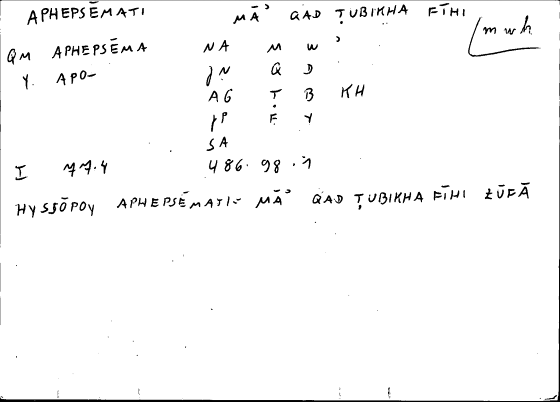 APHEPSĒMATI MĀʾ QAD ṬUBIKHA FĪHI mwh
QM APHEPSĒMA NA M W ʾ
Y. APO- JN Q D
AG Ṭ B KH
JP F Y
SA
I 77.4 486.98.1
HYSSŌPOY APHEPSĒMATI- MĀʾ QAD ṬUBIKHA FĪHI ZŪFĀ